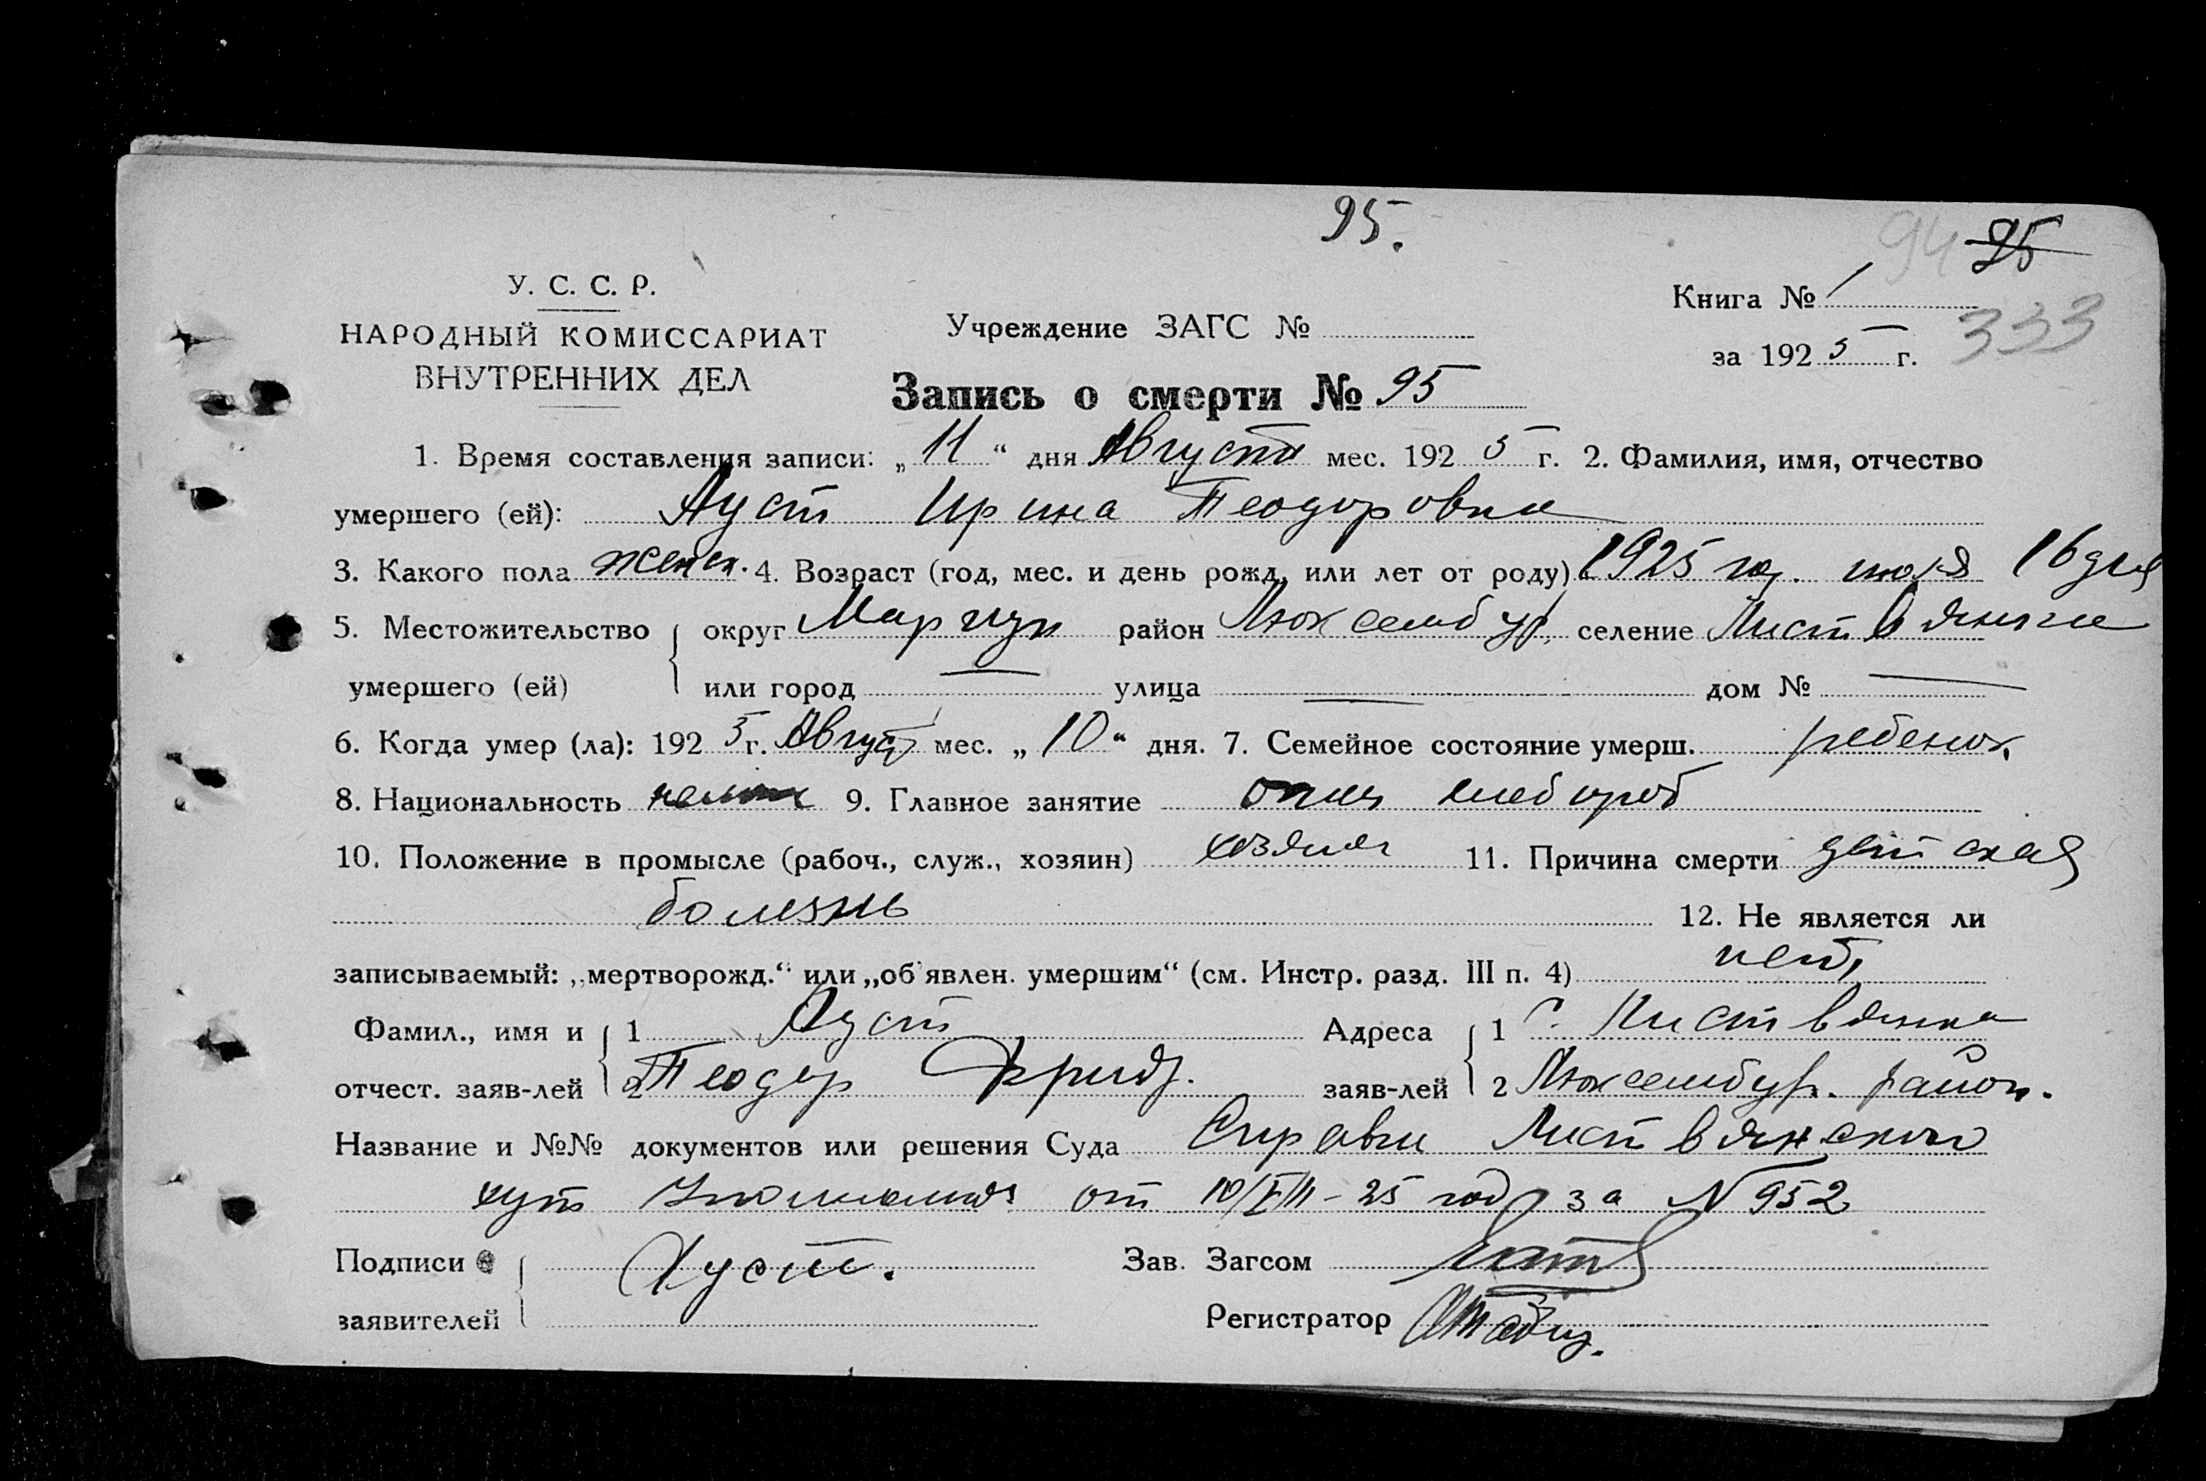 95.
94 95
У. С. С. Р.
Книга № 1
333
НАРОДНЫЙ КОМИССАРИАТ
ВНУТРЕННИХ ДЕЛ
Учреждение ЗАГС №
за 1925 г.
Запись о смерти № 95
1. Время составления записи: „11“ дня Августа мес. 1925 г. 2. Фамилия, имя, отчество
умершего (ей): Ауст Ирина Теодоровна
3. Какого пола женск. 4. Возраст (год, мес. и день рожд. или лет от роду) 1925 год. июля 16 дня
5. Местожительство округ Мариуп район Люксембур. селение Листвянка
умершего (ей) или город — улица — дом № —
6. Когда умер (ла): 1925 г. Август мес. „10“ дня. 7. Семейное состояние умерш. ребенок
8. Национальность 9. Главное занятие отец хлебороб
10. Положение в промысле (рабоч., служ., хозяин) хозяин 11. Причина смерти детская
болезнь 12. Не является ли
записываемый: „мертворожд.“ или „об'явлен. умершим“ (см. Инстр. разд. III п. 4) нет
Фамил., имя и 1 Ауст Адреса 1 с. Листвянка
отчест. заяв-лей 2 Теодор Фрид. заяв-лей 2 Люксембур. район.
Название и №№ документов или решения Суда Справки Листвянского
хут от 10/VIII-25 года за № 952
Подписи Ауст. Зав. Загсом
заявителей Регистратор